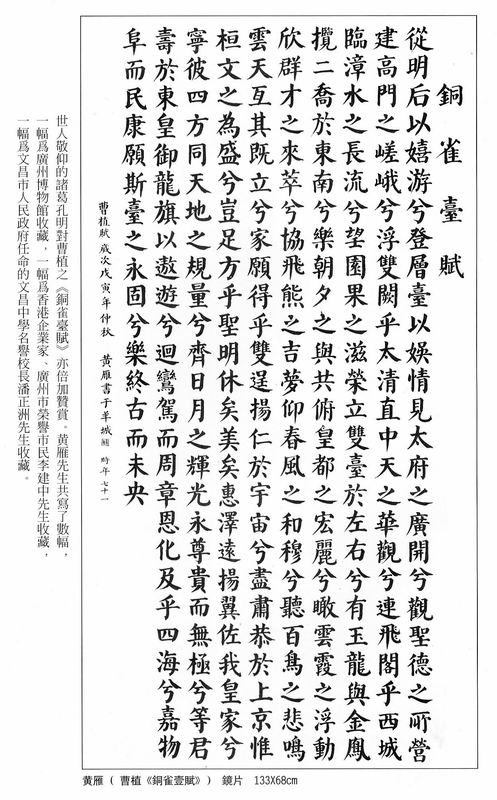 銅雀臺賦
從明后以嬉游兮登層臺以娛情見太府之廣開兮觀聖德之所營
建高門之嵯峨兮浮雙闕乎太清直中天之華觀兮連飛閣乎西城
臨漳水之長流兮望園果之滋榮立雙臺於左右兮有玉龍與金鳳
攬二喬於東南兮樂朝夕之與共俯皇都之宏麗兮瞰雲霞之浮動
欣群才之來萃兮協飛熊之吉夢仰春風之和穆兮聽百鳥之悲鳴
雲天亙其既立兮家願得乎雙逞揚仁於宇宙兮盡肅恭於上京惟
桓文之為盛兮豈足方乎聖明休矣美矣惠澤遠揚翼佐我皇家兮
寧彼四方同天地之規量兮齊日月之輝光永尊貴而無極兮等君
壽於東皇御龍旗以遨遊兮迴鸞駕而周章恩化及乎四海兮嘉物
阜而民康願斯臺之永固兮樂終古而未央
曹植賦 歲次戊寅年仲秋 黄雁書于羊城 時年七十一
世人敬仰的諸葛孔明對曹植之《銅雀臺賦》亦倍加贊賞。黄雁先生共寫了數幅，
一幅爲廣州博物館收藏，一幅爲香港企業家、廣州市榮譽市民李建中先生收藏，
一幅爲文昌市人民政府任命的文昌中學名譽校長潘正洲先生收藏。
黄雁（曹植《銅雀壹賦》） 鏡片 133X68cm